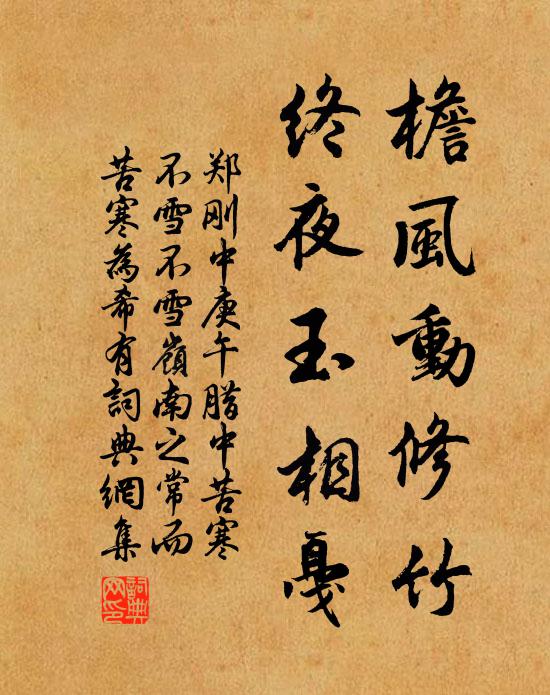 檐風動修竹
終夜玉相戛
郑刚中庚午腊中苦寒
不雪不雪嶺南之常而
苦寒為希有詞典網集
詞典网印